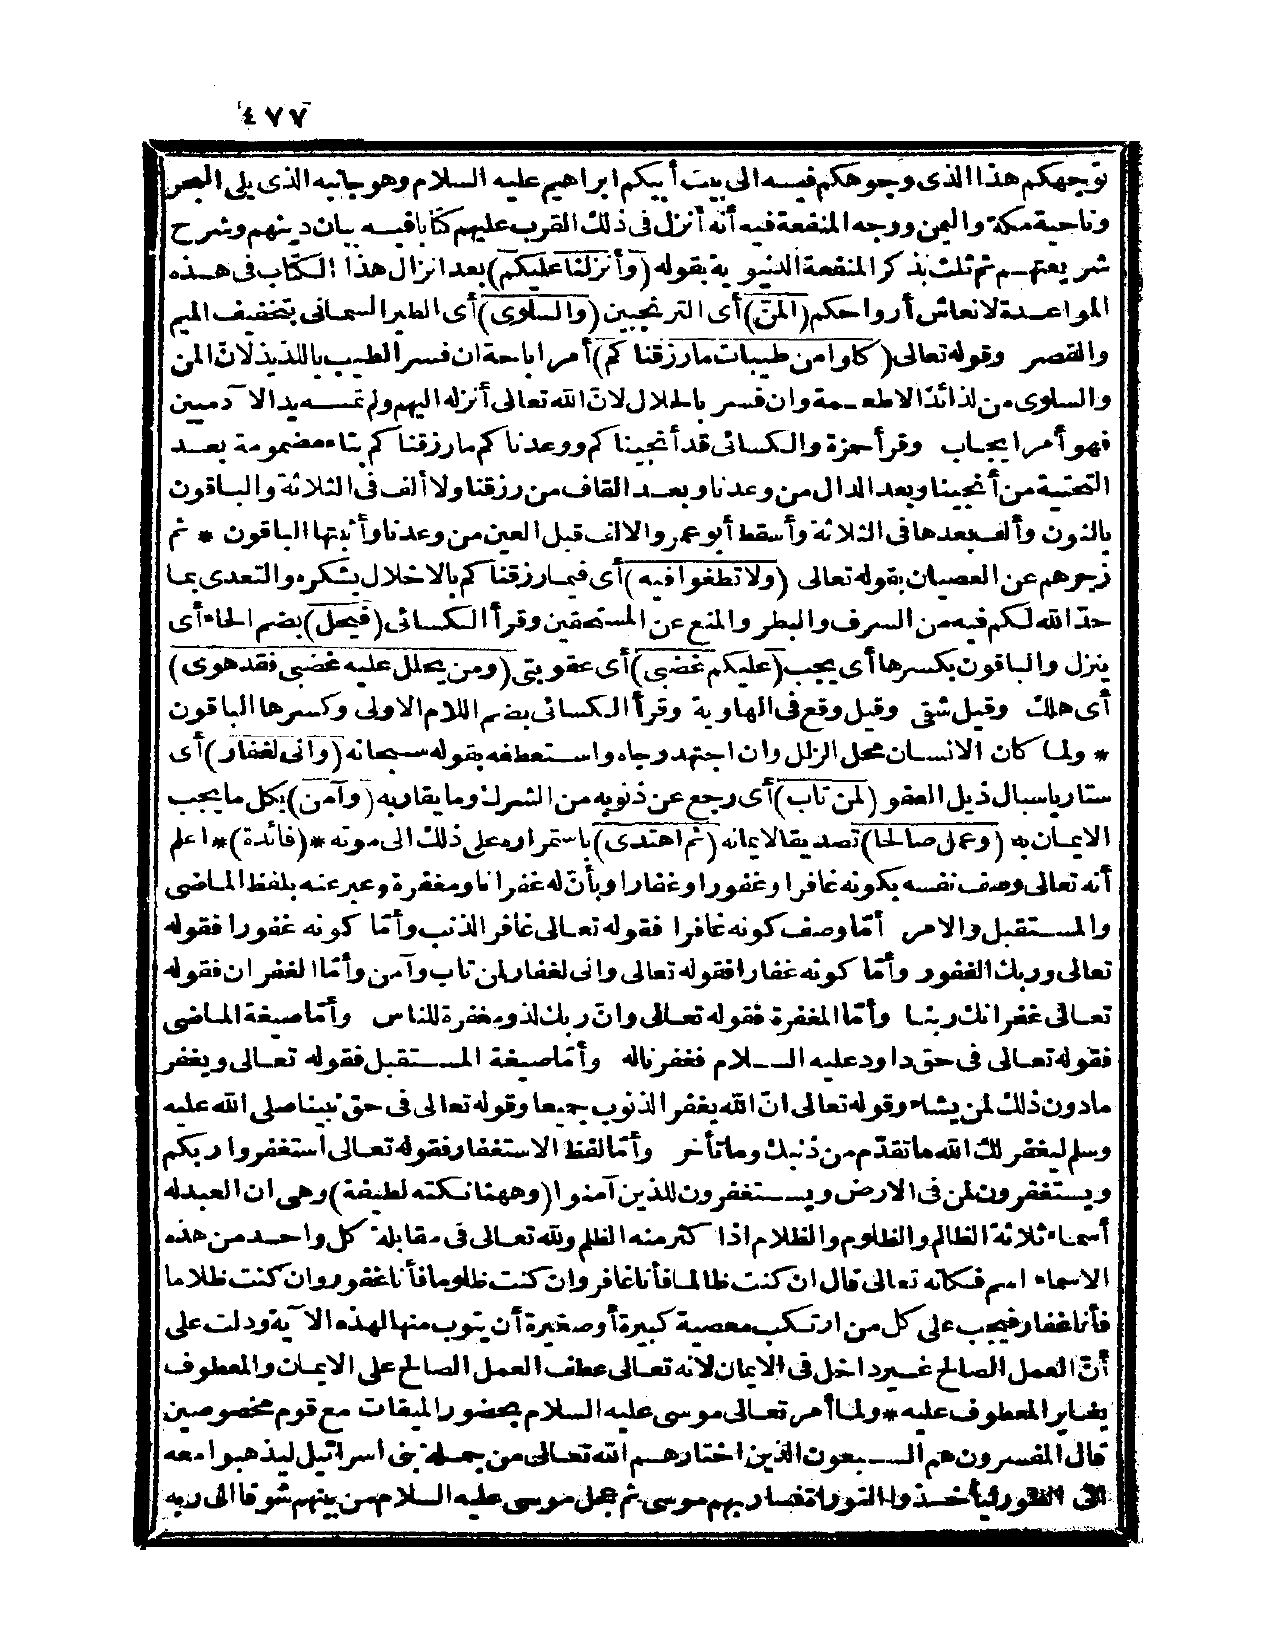 ٤٧٧
توجهكم هذا الذى وجوهكم فيه الى بيت أبيكم ابراهيم عليه السلام وهو جانبه الذى يلى البحر
وناحية مكة واليمن ووجه المنفعة فيه أنه أنزل فى ذلك القرب عليهم كتابا فيه بيان دينهم وشرح
شريعتهم ثم ثلث بذكر المنفعة الدنيوية بقوله (وأنزلنا عليكم) بعد انزال هذا الكتاب فى هذه
المواعدة لانعاش أرواحكم (المنّ) أى الترنجبين (والسلوى) أى الطير السمانى بتخفيف الميم
والقصر وقوله تعالى (كلوا من طيبات ما رزقناكم) أمر اباحة ان فسر الطيب باللذيذ لانّ المن
والسلوى من لذائذ الاطعمة وان فسر بالحلال لانّ الله تعالى أنزله اليهم ولم تمسه يد الآدميين
فهو أمر ايجاب وقرأ حمزة والكسائى قد أنجيناكم ووعدناكم ما رزقناكم بتاء مضمومة بعد
التحتية من أنجينا وبعد الدال من وعدنا وبعد القاف من رزقنا ولا ألف فى الثلاثة والباقون
بالنون وألف بعدها فى الثلاثة وأسقط أبو عمرو الالف قبل العين من وعدنا وأثبتها الباقون * ثم
زجرهم عن العصيان بقوله تعالى (ولا تطغوا فيه) أى فيما رزقناكم بالاخلال بشكره والتعدى بما
حدّ الله لكم فيه من السرف والبطر والمنع عن المستحقين وقرأ الكسائى (فيحل) بضم الحاء أى
ينزل والباقون بكسرها أى يجب (عليكم غضبى) أى عقوبتى (ومن يحلل عليه غضبى فقد هوى)
أى هلك وقيل شقى وقيل وقع فى الهاوية وقرأ الكسائى بضم اللام الاولى وكسرها الباقون
* ولما كان الانسان محل الزلل وان اجتهد رجاه واستعطفه بقوله سبحانه (وانى لغفار) أى
ستار باسبال ذيل العفو (لمن تاب) أى رجع عن ذنوبه من الشرك وما يقاربه (وآمن) بكل ما يجب
الايمان به (وعمل صالحا) تصديقا لايمانه (ثم اهتدى) باستمراره على ذلك الى موته *(فائدة)* اعلم
أنه تعالى وصف نفسه بكونه غافرا وغفورا وغفارا وبأنّ له غفرانا ومغفرة وعبر عنه بلفظ الماضى
والمستقبل والامر أمّا وصف كونه غافرا فقوله تعالى غافر الذنب وأمّا كونه غفورا فقوله
تعالى وربك الغفور وأمّا كونه غفارا فقوله تعالى وانى لغفار لمن تاب وآمن وأمّا الغفران فقوله
تعالى غفرانك ربنا وأمّا المغفرة فقوله تعالى وانّ ربك لذو مغفرة للناس وأمّا صيغة الماضى
فقوله تعالى فى حق داود عليه السلام فغفرنا له وأمّا صيغة المستقبل فقوله تعالى ويغفر
مادون ذلك لمن يشاء وقوله تعالى انّ الله يغفر الذنوب جميعا وقوله تعالى فى حق نبينا صلى الله عليه
وسلم ليغفر لك الله ما تقدّم من ذنبك وما تأخر وأمّا لفظ الاستغفار فقوله تعالى استغفروا ربكم
ويستغفرون لمن فى الارض ويستغفرون للذين آمنوا (وههنا نكتة لطيفة) وهى ان العبد له
أسماء ثلاثة الظالم والظلوم والظلام اذا كثر منه الظلم ولله تعالى فى مقابلة كل واحد من هذه
الاسماء اسم فكانه تعالى قال ان كنت ظالما فأنا غافر وان كنت ظلوما فأنا غفور وان كنت ظلاما
فأنا غفار فيجب على كل من ارتكب معصية كبيرة أو صغيرة أن يتوب منها لهذه الآية ودلت على
أنّ العمل الصالح غير داخل فى الايمان لانه تعالى عطف العمل الصالح على الايمان والمعطوف
يغاير المعطوف عليه * ولما أمر تعالى موسى عليه السلام بحضور الميقات مع قوم مخصوصين
قال المفسرون هم السبعون الذين اختارهم الله تعالى من جملة بنى اسرائيل ليذهبوا معه
الى الطور ليأخذوا التوراة فسار بهم موسى ثم عجل موسى عليه السلام من بينهم شوقا الى ربه